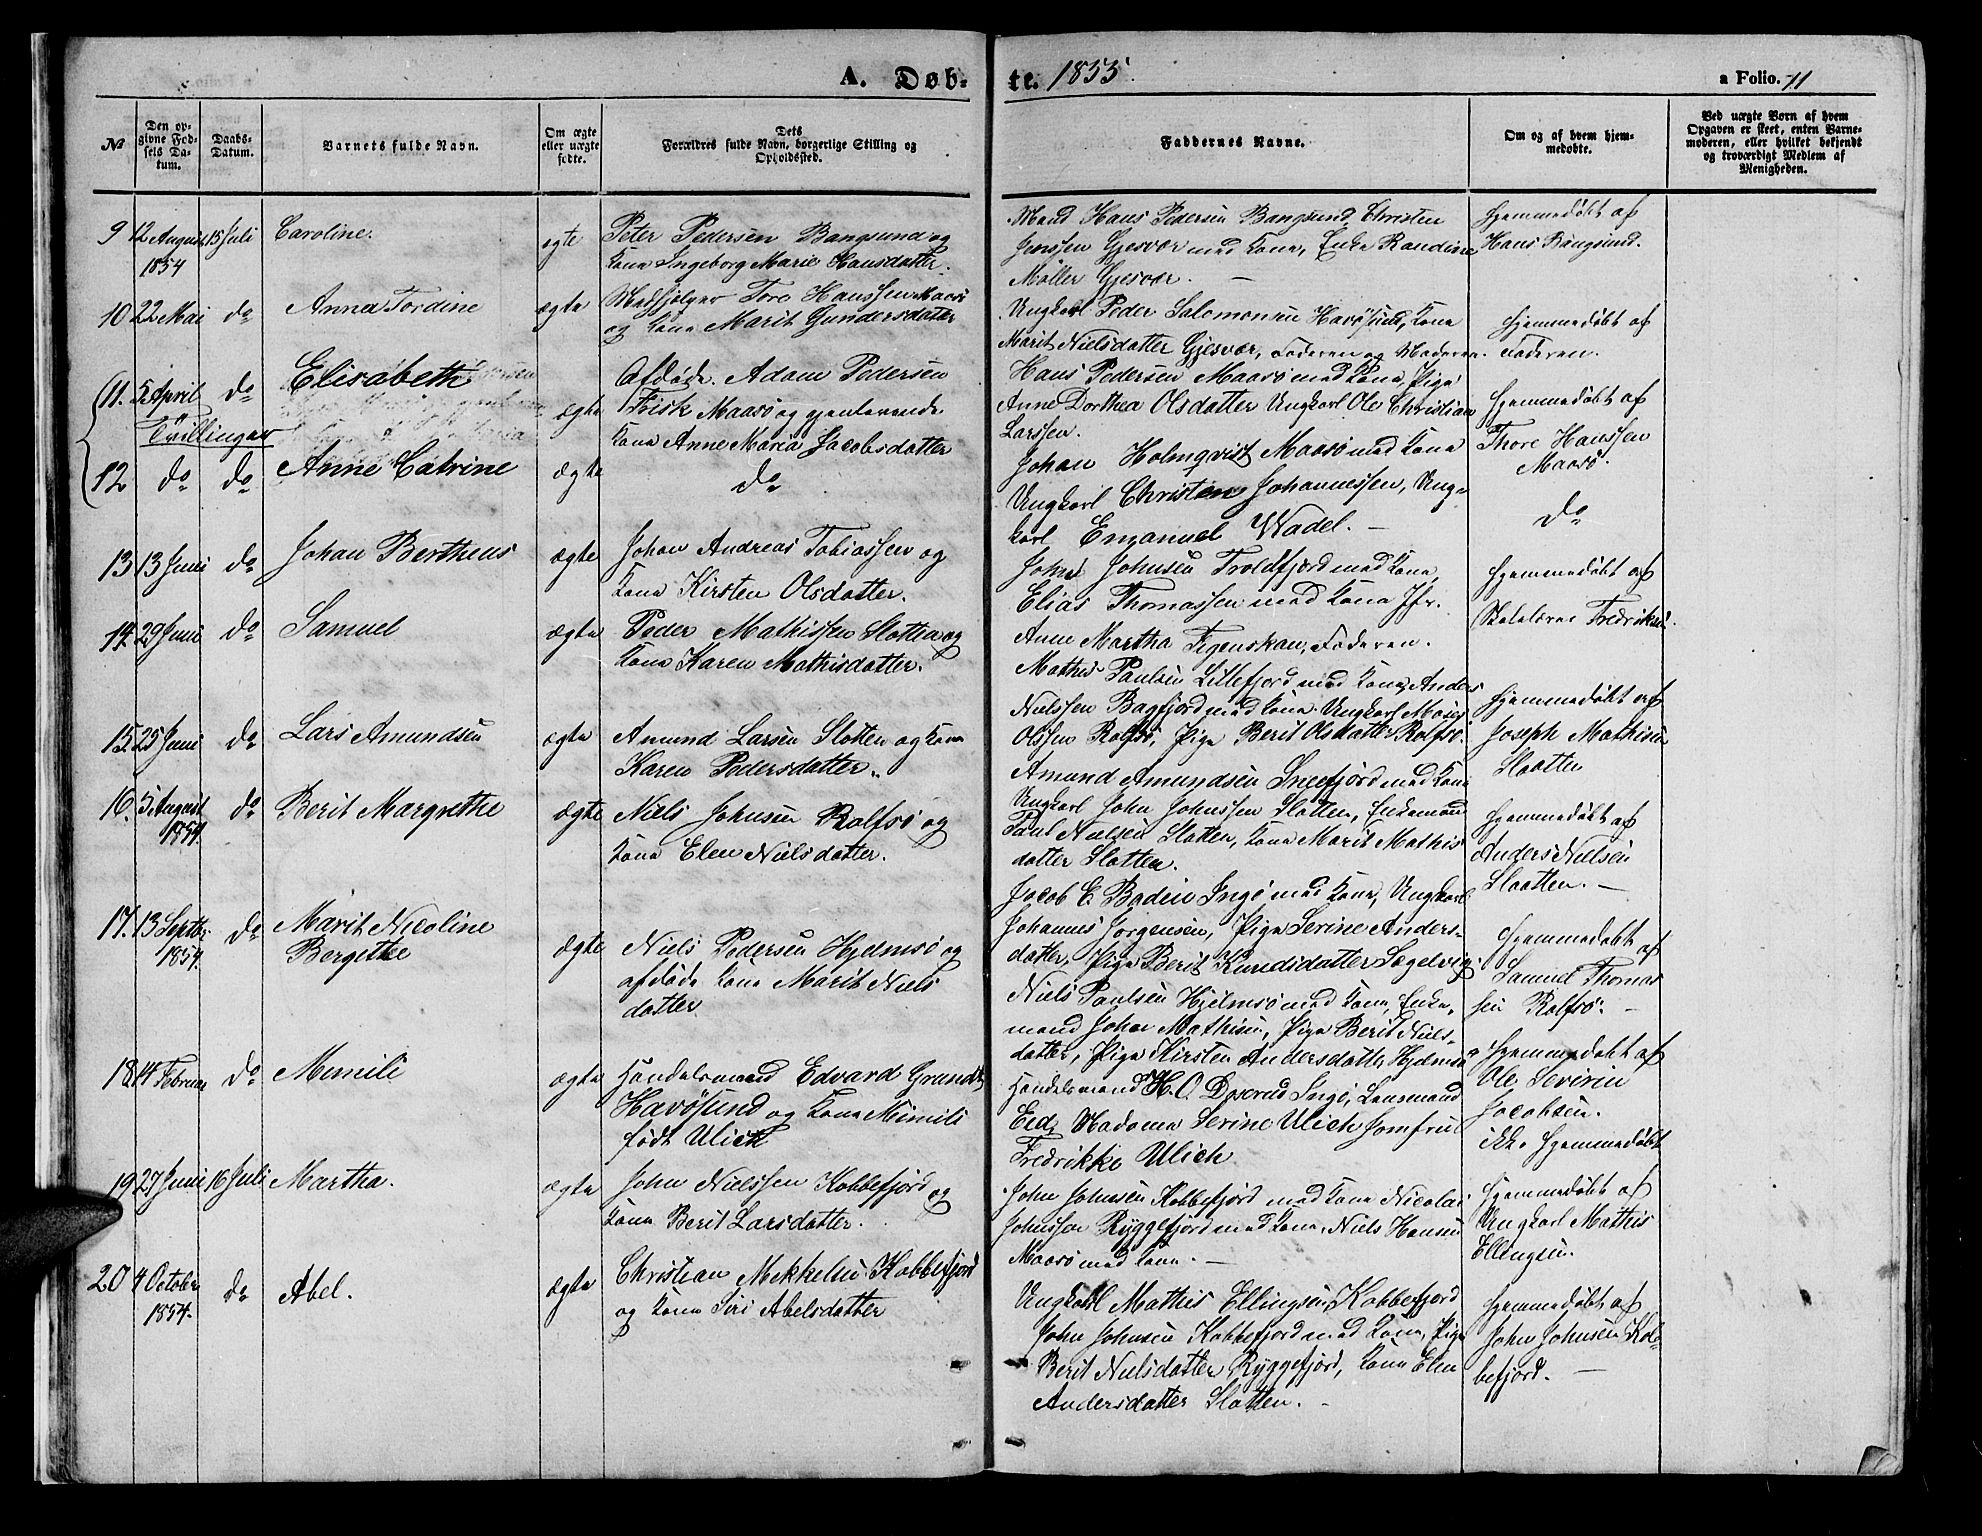 A. Døb-
te. 1855.
a Folio. 11
№
Den op-
givne Fød-
sels Da-
tum.
Daabs-
Datum.
Barnets fulde Navn.
Om ægte
eller uægte
fødte.
Dets
Forældres fulde Navn, borgerlige Stilling og
Opholdssted.
Faddernes Navne.
Om og af hvem hjem-
medøbte.
Ved uægte Børn af hvem
Opgaven er skeet, enten Barne-
moderen, eller hvilket bekjendt
og troværdigt Medlem af
Menigheden.
9 12 August 15 Juli
1854
Caroline.
ægte
Peter Pedersen Bangsund og
Kone Ingeborg Marie Hansdatter.
Mand Hans Pedersen Bangsund, Christen
Jenssen Gjesvær med Kone, Enke Randine
Møller Gjesvær. —
Hjemmedøbt af
Hans Bangsund.
10 22 Mai do
Anna Tordine
ægte
Medhjelper Tore Hanssen Maasø
og Kone Marit Gundersdatter
Ungkarl Peder Salomonsen Havøsund, Kone
Marit Nielsdatter Gjesvær, Faderen og Moderen.
Hjemmedøbt af
Faderen.
11. 5 April do
Tvillinger
Elisabeth
ægte
Afdøde Adam Pedersen
Frisk Maasø og gjenlevende
Kone Anne Maria Jacobsdatter
Hans Pedersen Maasø med Kone, Pige
Anne Dorthea Olsdatter Ungkarl Ole Christian
Larssen.
Hjemmedøbt af
Thore Hanssen
Maasø.
12 do do
Anne Catrine
ægte
do
Johan Holmqvist Maasø med Kone
Ungkarl Christen Johannessen, Ung-
karl Emanuel Wadel. —
do
13 13 Juni do
Johan Bertheus
ægte
Johan Andreas Tobiassen og
Kone Kirsten Olsdatter.
John Johnsen Troldfjord med Kone,
Elias Thomassen med Kone Jfr.
Anne Martha Figenskau, Faderen.
Hjemmedøbt af
Skolelærer Fredriksen.
14. 29 Juni do
Samuel
ægte
Peder Mathissen Slotten og
Kone Karen Mathisdatter.
Mathis Paulsen Lillefjord med Kone, Anders
Nielssen Bagfjord med Kone. Ungkarl Moses
Olssen Rolfsø, Pige Berit Olsdatter Rolfsø.
Hjemmedøbt af
Joseph Mathisen
Slaatten
15. 25 Juni do
Lars Amundsen
ægte
Amund Larsen Slotten og Kone
Karen Pedersdatter.
Amund Amundsen Sneefjord med Kone
Ungkarl John Johnssen Slotten, Enkemand
Paul Nielsen Slotten, Kone Marit Mathis
datter Slotten.
Hjemmedøbt af
Anders Nielsen
Slaatten. —
16. 5 August do
1854.
Berit Margrethe
ægte
Niels Johnsen Rolfsø og
Kone Elen Nielsdatter.
Jacob E. Boden Ingø med Kone, Ungkarl
Johannis Jørgensen, Pige Serine Anders-
datter, Pige Berit Knudsdatter
Hjemmedøbt af
Samuel Thomas
sen Rolfsø. —
17. 13 Septbr. do
1854.
Marit Nicoline
Bergethe
ægte
Niels Pedersen Hjelmsø og
afdøde Kone Marit Niels
datter
Niels Paulsen Hjelmsø med Kone, Enke-
mand Johan Mathisen, Pige Berit Niels-
datter, Pige Kirsten Andersdatter Hjelmsø
Hjemmedøbt af
Ole Severin
Jacobsen.
18 14 Februar do
Mimili
ægte
Handelsmand Edvard Grundt
Havøsund og Kone Mimili
født Ulich
Handelsmand H. O. Ingø, Lensmand
Eid, Madame Serine Ulich Jomfru
Fredrikke Ulich.
ikke hjemmedøbt
19 27 Juni 16 Juli
Martha.
ægte
John Nielssen Kobbefjord og
Kone Berit Larsdatter.
John Johnsen Kobbefjord med Kone Nicolai
Johnssen Ryggefjord med Kone, Niels Hansen
Maasø med Kone. —
Hjemmedøbt af
Ungkarl Mathis
Ellingsen.
20 4 Octobr do
1854.
Abel.
ægte
Christian Mekkelsen Kobbefjord
og Kone Siri Abelsdatter
Ungkarl Mathis Ellingsen Kobbefjord
John Johnsen Kobbefjord med Kone, Pige
Berit Nielsdatter Ryggefjord, Kone Elen
Andersdatter Slotten. -
Hjemmedøbt af
John Johnsen Kob-
befjord. —